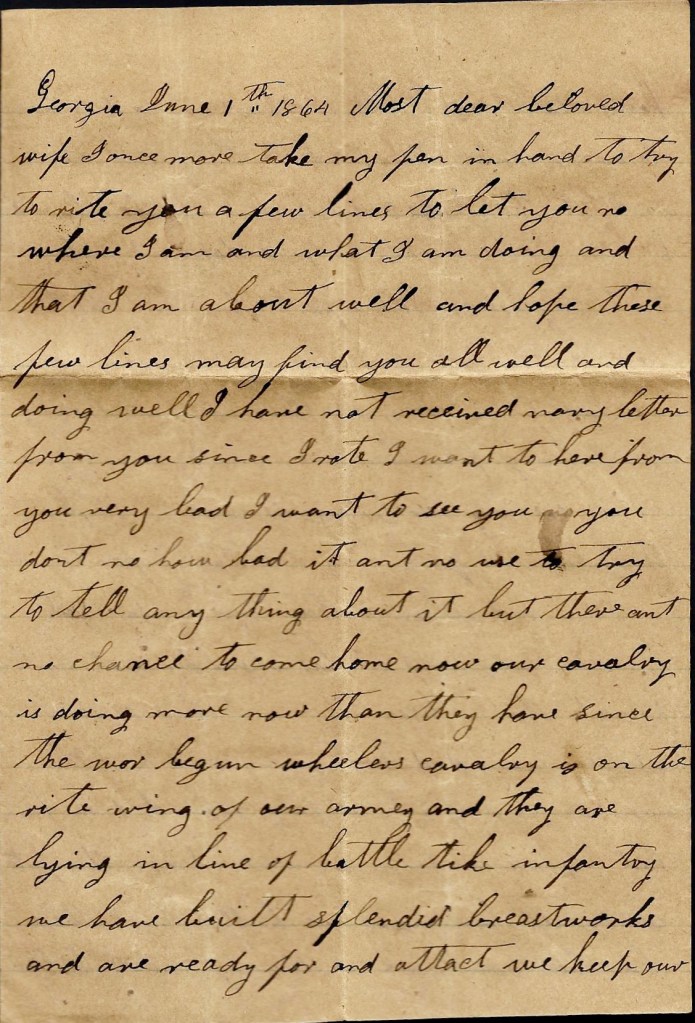 Georgia June 1th 1864 Most dear beloved
wife I once more take my pen in hand to try
to rite you a few lines to let you no
where I am and what I am doing and
that I am about well and hope these
few lines may find you all well and
doing well I have not received nary letter
from you since I rote I want to here from
you very bad I want to see you you
dont no how bad it ant no use to try
to tell any thing about it but there ant
no chance to come home now our cavalry
is doing more now than they have since
the wor begun wheelers cavalry is on the
rite wing of our armey and they are
lying in line of battle like infantry
we have built splendid breastworks
and are ready for and attact we keep our